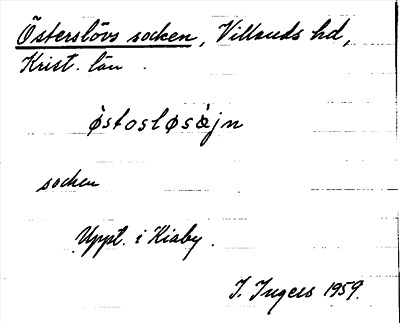 Österslövs socken, Villands hd,
Krist. län.
östosløsøjn
socken
Uppt. i Kiaby.
I. Ingers 1959.